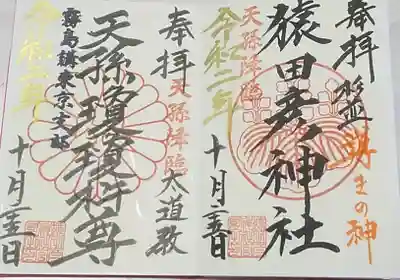 奉拝
導きの神
猿田彦神社
天孫降臨
令和二年
十月二五日
奉拝
天孫降臨
太道教
天孫瓊瓊杵尊
霧島講東京支部
令和二年
十月二五日